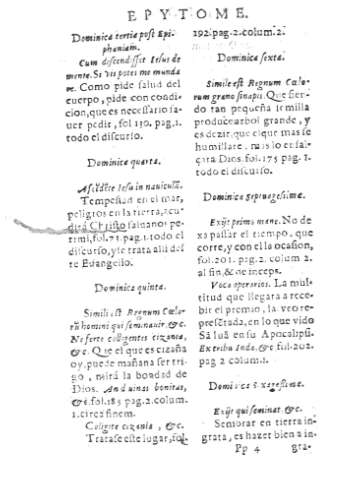 EPYTOME.
Dominica tertia post Epi-
phaniam.
Cum descendisset Iesus de
monte. Si vis potes me munda
re. Como pide salud del
cuerpo, pide con condi-
cion, que es necessario sa-
uer pedir, fol 130. pag. 1.
todo el discurso.
Dominica quarta.
Ascēdēte Iesu in nauiculā.
Tempestad en el mar,
peligros en la tierra, acu-
dirà Christo
rimi, fol. 71. pag. 1. todo el
discurso, y se trata alli des
te Euangelio.
Dominica quinta.
Simile est Regnum Cœlo-
rū homini qui seminauit, &c.
Ne forte colligentes cizania,
&c. Que el que es cizaña
oy, puede mañana ser tri-
go, mirà la bondad de
Dios. bonitas,
&c. fol. 185 pag. 2. colum.
1. circa finem.
Coligite cizania, &c.
Tratase este lugar, fol.
192. pag. 2. colum. 2.
Dominica sexta.
Simile est Regnum Cœlo-
rum grano sinapis. Que sien-
do tan pequeña semilla
produce arbol grande, y
es dezir, que el que mas se
humillare, mas lo ensal-
çarà Dios. fol. 175 pag. 1.
todo el discurso.
Dominica septuagessima.
Exijt primo mane. No de
xa passar el tiempo, que
corre, y con ella ocasion,
fol. 201. pag. 2. colum 2.
al fin, & deinceps.
Voca operarios. La mul-
titud que llegarà a rece-
bir el premio, la veo re-
presētada, en lo que vido
Sā Iuā en su Apocalipsi.
&c fol. 202.
pag 2 colum. 1.
Dominica sexagesima.
Exijt qui seminat &c.
Sembrar en tierra in-
grata, es hazer bien a in-
Pp 4
gra-